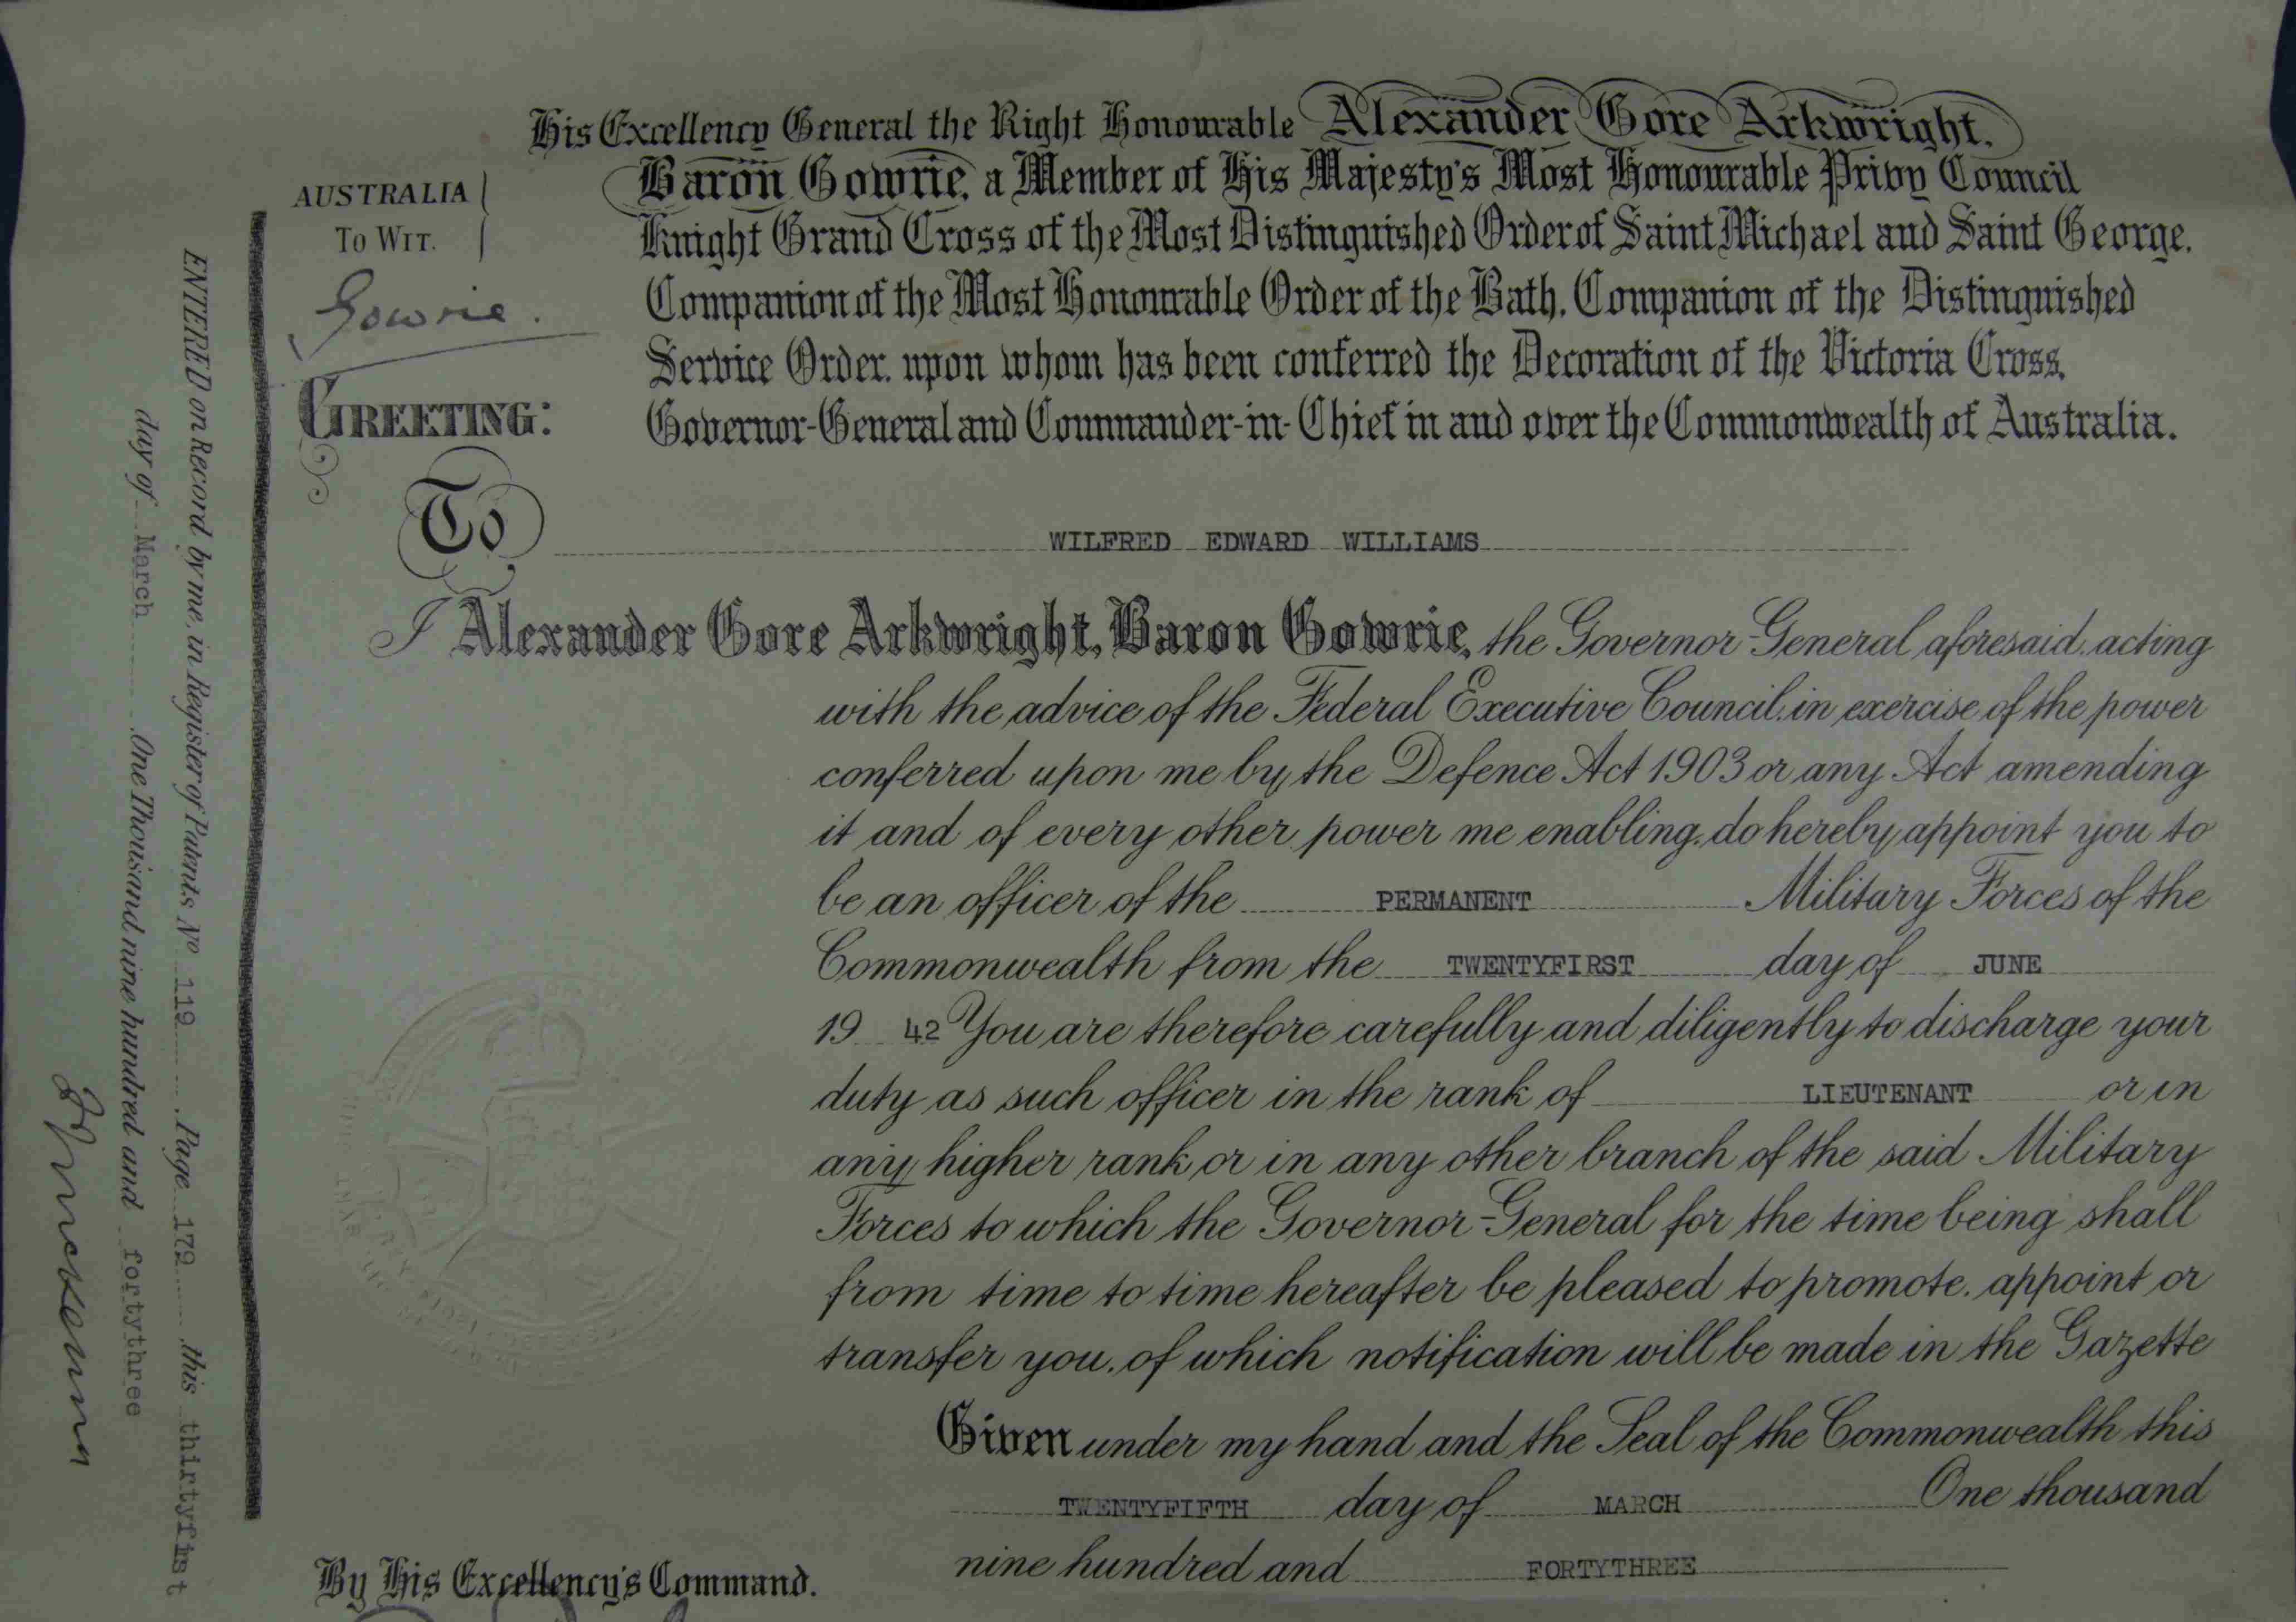 His Excellency General the Right Honourable Alexander Gore Arkwright,
Baron Gowrie, a Member of His Majesty's Most Honourable Privy Council
Knight Grand Cross of the Most Distinguished Order of Saint Michael and Saint George,
Companion of the Most Honourable Order of the Bath, Companion of the Distinguished
Service Order, upon whom has been conferred the Decoration of the Victoria Cross,
Governor-General and Commander-in-Chief in and over the Commonwealth of Australia.
AUSTRALIA
TO WIT.
Gowrie.
GREETING:
To WILFRED EDWARD WILLIAMS
I Alexander Gore Arkwright, Baron Gowrie, the Governor-General aforesaid, acting
with the advice of the Federal Executive Council, in exercise of the power
conferred upon me by the Defence Act 1903 or any Act amending
it and of every other power me enabling, do hereby appoint you to
be an officer of the PERMANENT Military Forces of the
Commonwealth from the TWENTYFIRST day of JUNE
19 42 You are therefore carefully and diligently to discharge your
duty as such officer in the rank of LIEUTENANT or in
any higher rank or in any other branch of the said Military
Forces to which the Governor-General for the time being shall
from time to time hereafter be pleased to promote, appoint or
transfer you, of which notification will be made in the Gazette
Given under my hand and the Seal of the Commonwealth this
TWENTYFIFTH day of MARCH One thousand
nine hundred and FORTYTHREE
By His Excellency's Command.
ENTERED on Record by me, in Register of Patents No 119 Page 179 this thirtyfirst
day of March One Thousand nine hundred and fortythree